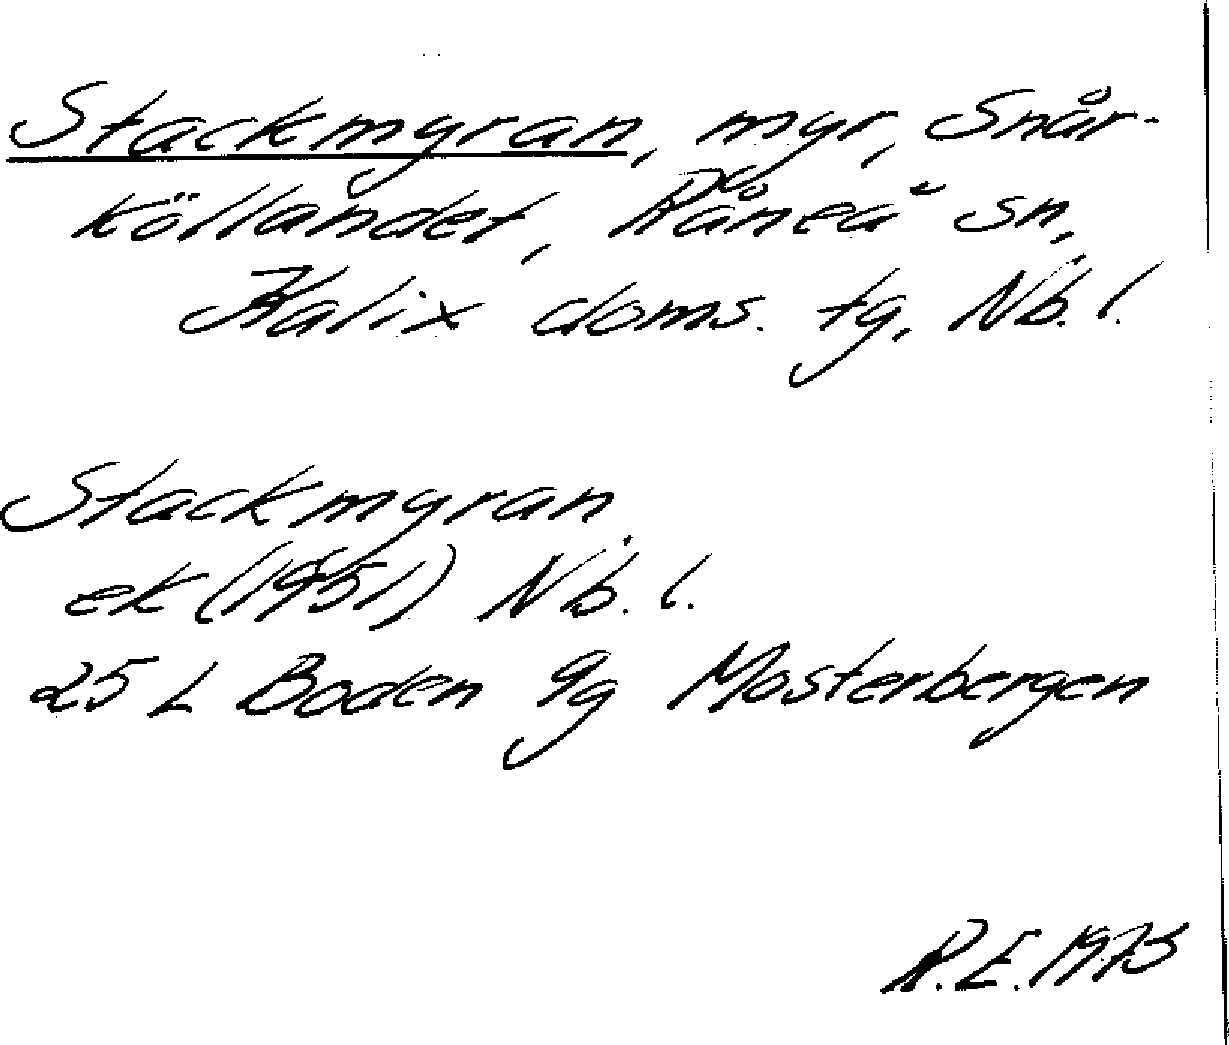 Stackmyran, myr, Snår-
kölländet, Råneå sn,
Kalix doms. tg, Nb. l.
Stackmyran
ek (1951) Nb. l.
25 L Boden 9g Mosterbergen
R.E. 1975